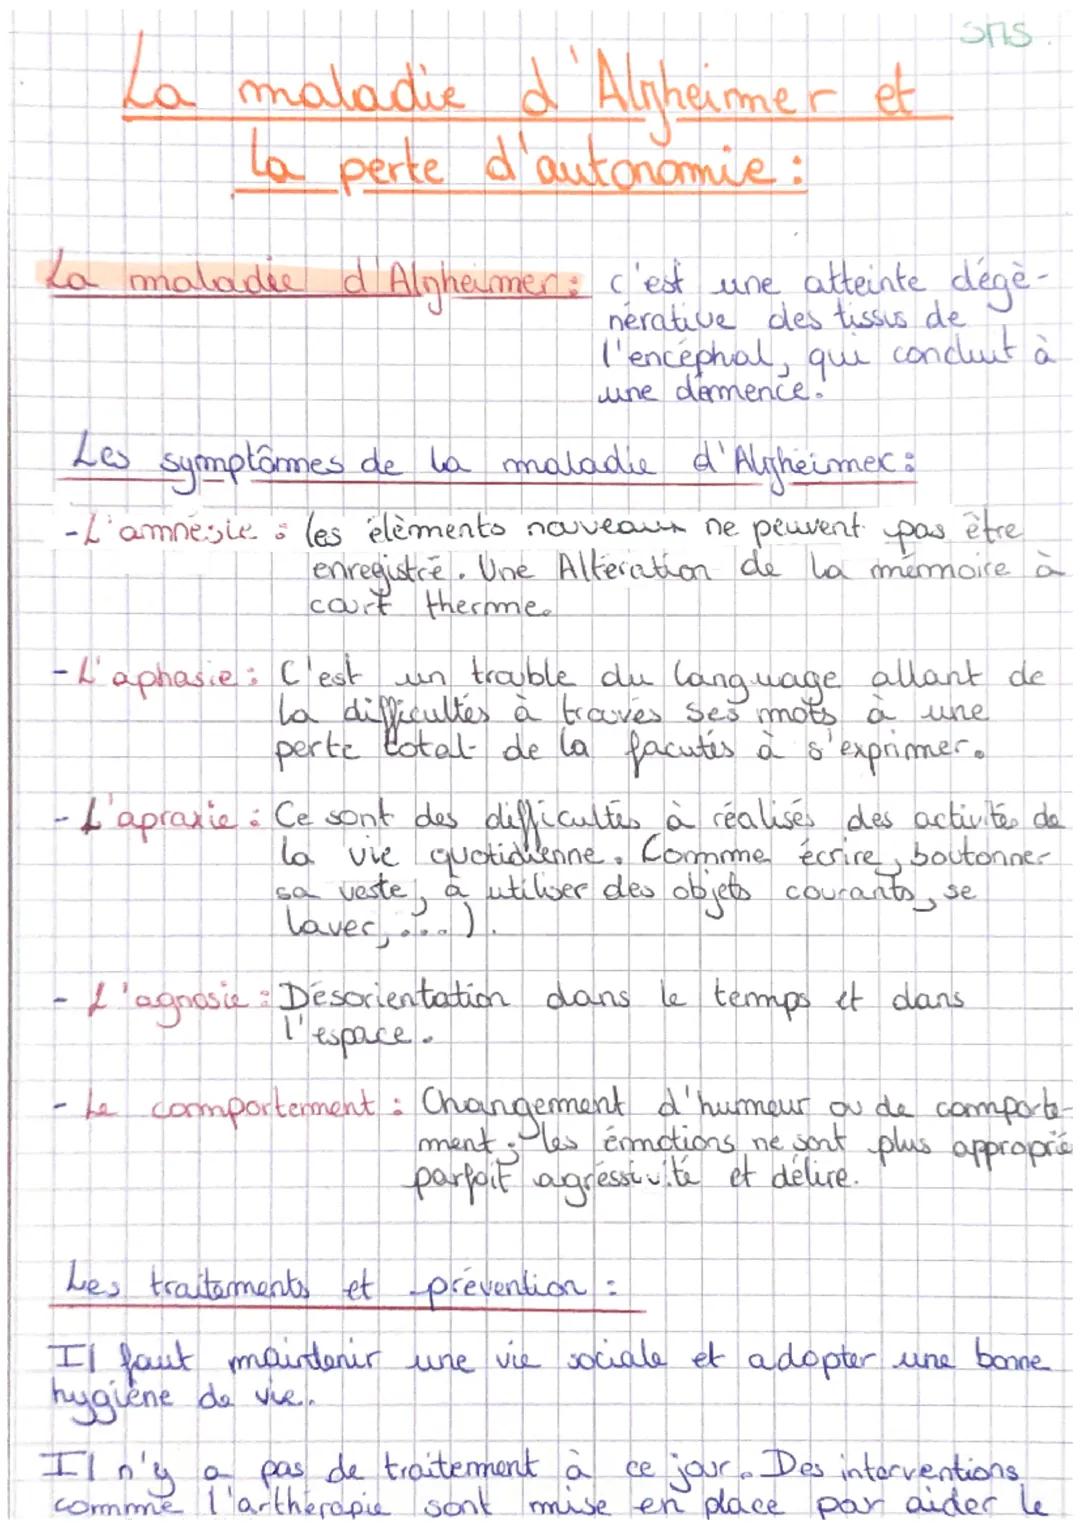 SMS.
La maladie d'Alzheimer et
la perte d'autonomie :
La maladie d'Alzheimer : c'est une atteinte dégè-
nérative des tissus de
l'encéphal, qui conduit à
une démence.
Les symptômes de la maladie d'Alzheimer :
- L'amnésie : les élèments nouveaux ne peuvent pas être
enregistré. Une Altération de la mémoire à
court therme.
- L'aphasie : C'est un trouble du language allant de
la difficultés à través ses mots à une
perte total de la facutés à s'exprimer.
- L'apraxie : Ce sont des difficultés à réalisés des activités de
la vie quotidienne. Comme écrire, boutonner
sa veste, à utiliser des objets courants, se
laver, ...).
- L'agnosie : Désorientation dans le temps et dans
l'espace.
- Le comportement : Changement d'humeur ou de comporte-
ment ; les émotions ne sont plus approprié
parfoit agréssivité et délire.
Les traitements et prévention :
Il faut maintenir une vie sociale et adopter une bonne
hygiène de vie.
Il n'y a pas de traitement à ce jour. Des interventions
comme l'arthérapie sont mise en place par aider le